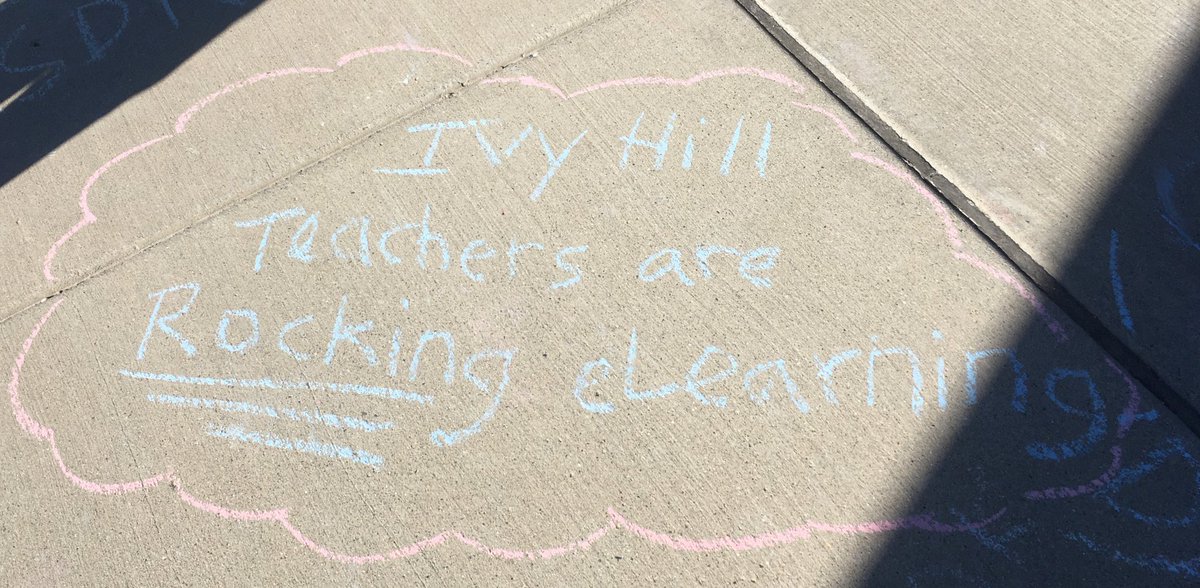 Ivy Hill
Teachers are
Rocking eLearning